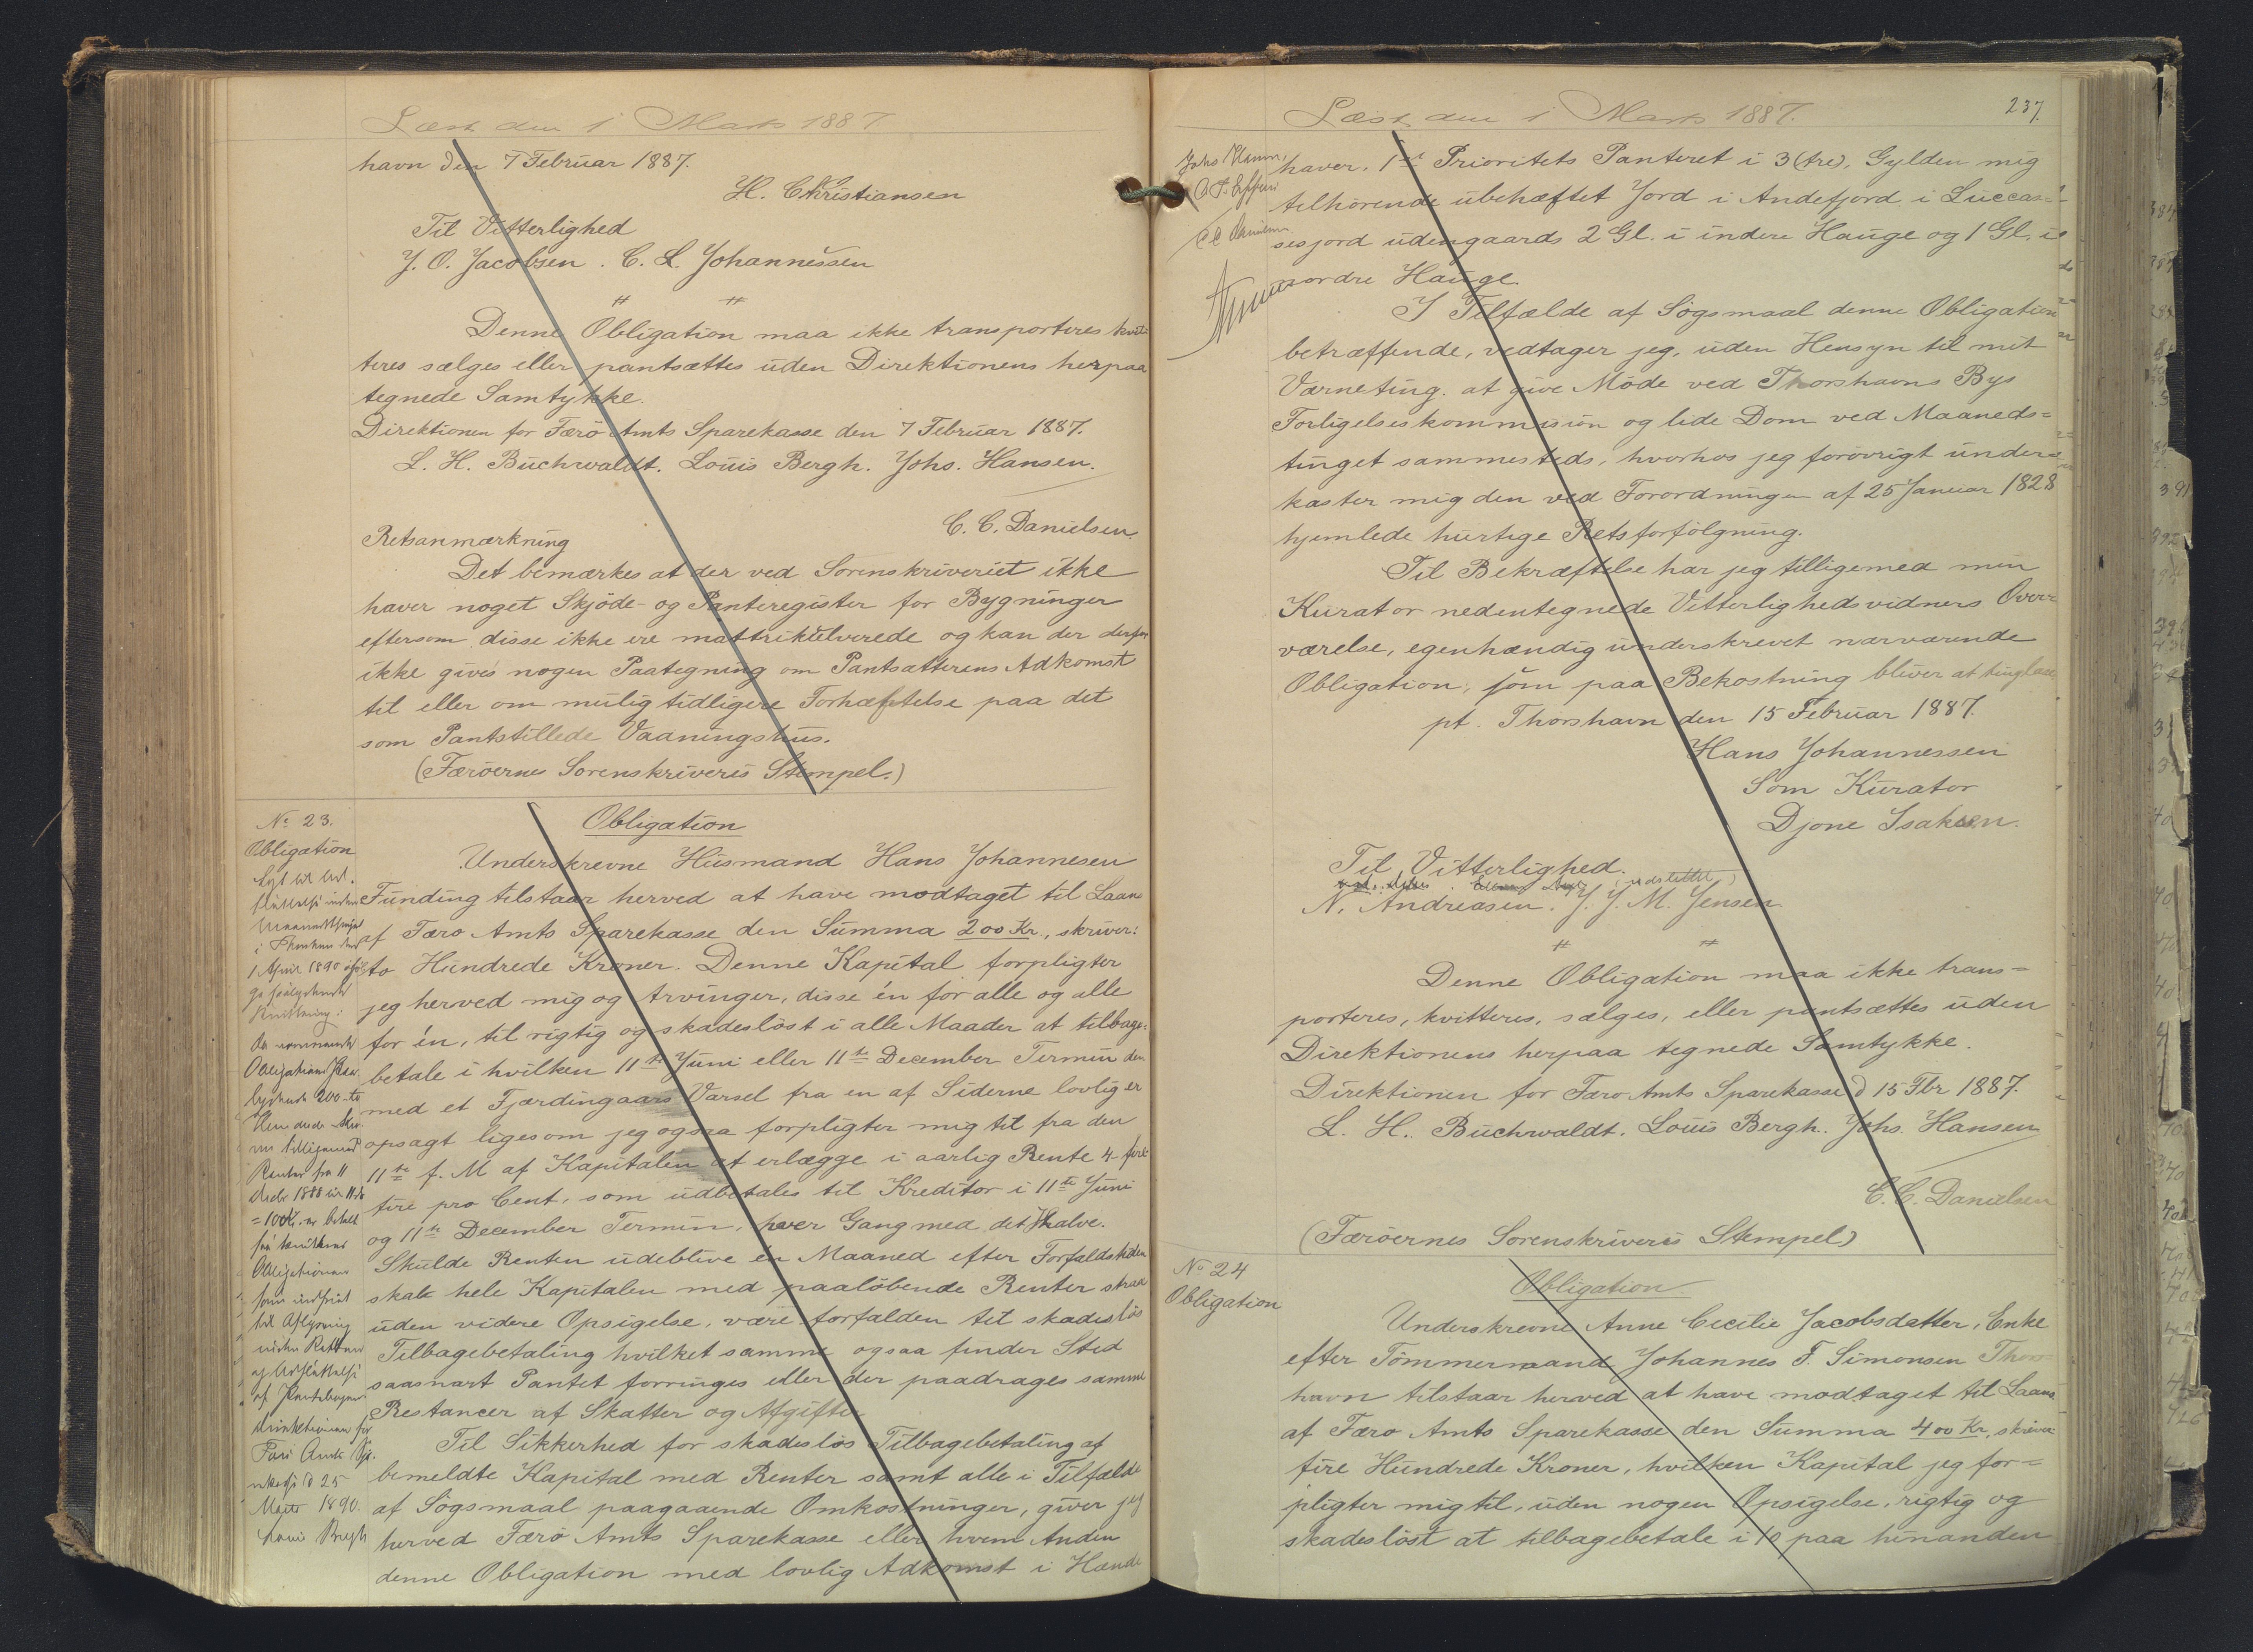 Læst den 1 Marts 1887.
havn den 7 Februar 1887.
H. Christiansen
Til Vitterlighed
J. O. Jacobsen. C. L. Johannessen
Denne Obligation maa ikke transporteres kvit-
teres sælges eller pantsættes uden Direktionens herpaa
tegnede Samtykke.
Direktionen for Færö Amts Sparekasse den 7 Februar 1887.
L. H. Buchwaldt. Louis Bergh. Johs. Hansen.
C. C. Danielsen
Retsanmærkning
Det bemærkes at der ved Sorenskriveriet ikke
haver noget Skjöde- og Panteregister for Bygninger
eftersom disse ikke ere mattrikulverede og kan der derfor
ikke gives nogen Paategning om Pantsætterens Adkomst
til eller om mulig tidligere Forhæftelse paa det
som Pantstillede Vaaningshus.
(Færöernes Sorenskriveris Stempel.)
No 23.
Obligation
1 April 1890
Obligation
200
Renter fra 11
Decbr 1888
Obligationen
til Aflysning
af Pantebogen
Direktionen for
Færö Amts Spa-
rekasse d 25
Marts 1890.
Louis Bergh
Obligation
Underskrevne Husmand Hans Johannesen
Funding tilstaar herved at have modtaget til Laans
af Færo Amts Sparekasse den Summa 200 Kr., skriver:
to Hundrede Kroner. Denne Kapital forpligter
jeg herved mig og Arvinger, disse én for alle og alle
for én, til rigtig og skadeslöst i alle Maader at tilbage-
betale i hvilken 11te Juni eller 11te December Termin den
med et Fjærdingaars Varsel fra en af Siderne lovlig er
opsagt ligesom jeg ogsaa forpligter mig til fra den
11te f. M af Kapitalen at erlægge i aarlig Rente 4 fire
fire pro Cent, som udbetales til Kreditor i 11te Juni
og 11te December Termin, hver Gang med det Halve.
Skulde Renten udeblive én Maaned efter Forfaldstiden
skal hele Kapitalen med paalöbende Renter strax
uden videre Opsigelse, være forfalden til skadeslös
Tilbagebetaling hvilket samme ogsaa finder Sted
saasnart Pantet forringes eller der paadrages samme
Restancer af Skatter og Afgifter
Til Sikkerhed for skadeslös Tilbagebetaling af
bemeldte Kapital med Renter samt alle i Tilfælde
af Sögsmaal paagaaende Omkostninger, giver jeg
herved Færö Amts Sparekasse eller hvem Anden
denne Obligation med lovlig Adkomst i Hænde
Læst den 1 Marts 1887.
237.
haver. 1ste Prioritets Panteret i 3 (tre), Gylden mig
tilhörende ubehæftet Jord i Andefjord i Luccas-
sesjord udengaards 2 Gl. i indere Hauge og 1 Gl. i
nordre Hauge.
I Tilfælde af Sögsmaal denne Obligation
betræffende, vedtager jeg, uden Hensyn til mit
Værneting. at give Möde ved Thorshavns Bys
Forligelseskommission og lide Dom ved Maaneds-
tinget sammesteds, hvorhos jeg forövrigt under-
kaster mig den ved Forordningen af 25 Januar 1828
hjemlede hurtige Retsforfölgning.
Til Bekræftelse har jeg tilligemed min
Kurator nedentegnede Vitterlighedsvidners Over-
værelse, egenhændig underskrevet nærværende
Obligation, som paa Bekostning bliver at tinglæse
pt. Thorshavn den 15 Februar 1887.
Hans Johannessen
Som Kurator
Djone Isaksen.
Til Vitterlighed.
N. Andreasen. J. J. M. Jensen
Denne Obligation maa ikke trans-
porteres, kvitteres, sælges, eller pantsættes uden
Direktionens herpaa tegnede Samtykke.
Direktionen for Færo Amts Sparekasse d 15 Fbr 1887.
L. H. Buchwaldt. Louis Bergh. Johs. Hansen
C. C. Danielsen
(Færöernes Sorenskriveris Stempel)
No 24
Obligation
Obligation
Underskrevne Anne Cecilie Jacobsdatter, Enke
efter Tömmermand Johannes F. Simonsen Thors-
havn tilstaar herved at have modtaget til Laans
af Færo Amts Sparekasse den Summa 400 Kr, skriver
fire Hundrede Kroner, hvilken Kapital jeg for-
pligter mig til, uden nogen Opsigelse, rigtig og
skadeslöst at tilbagebetale i 10 paa hinanden